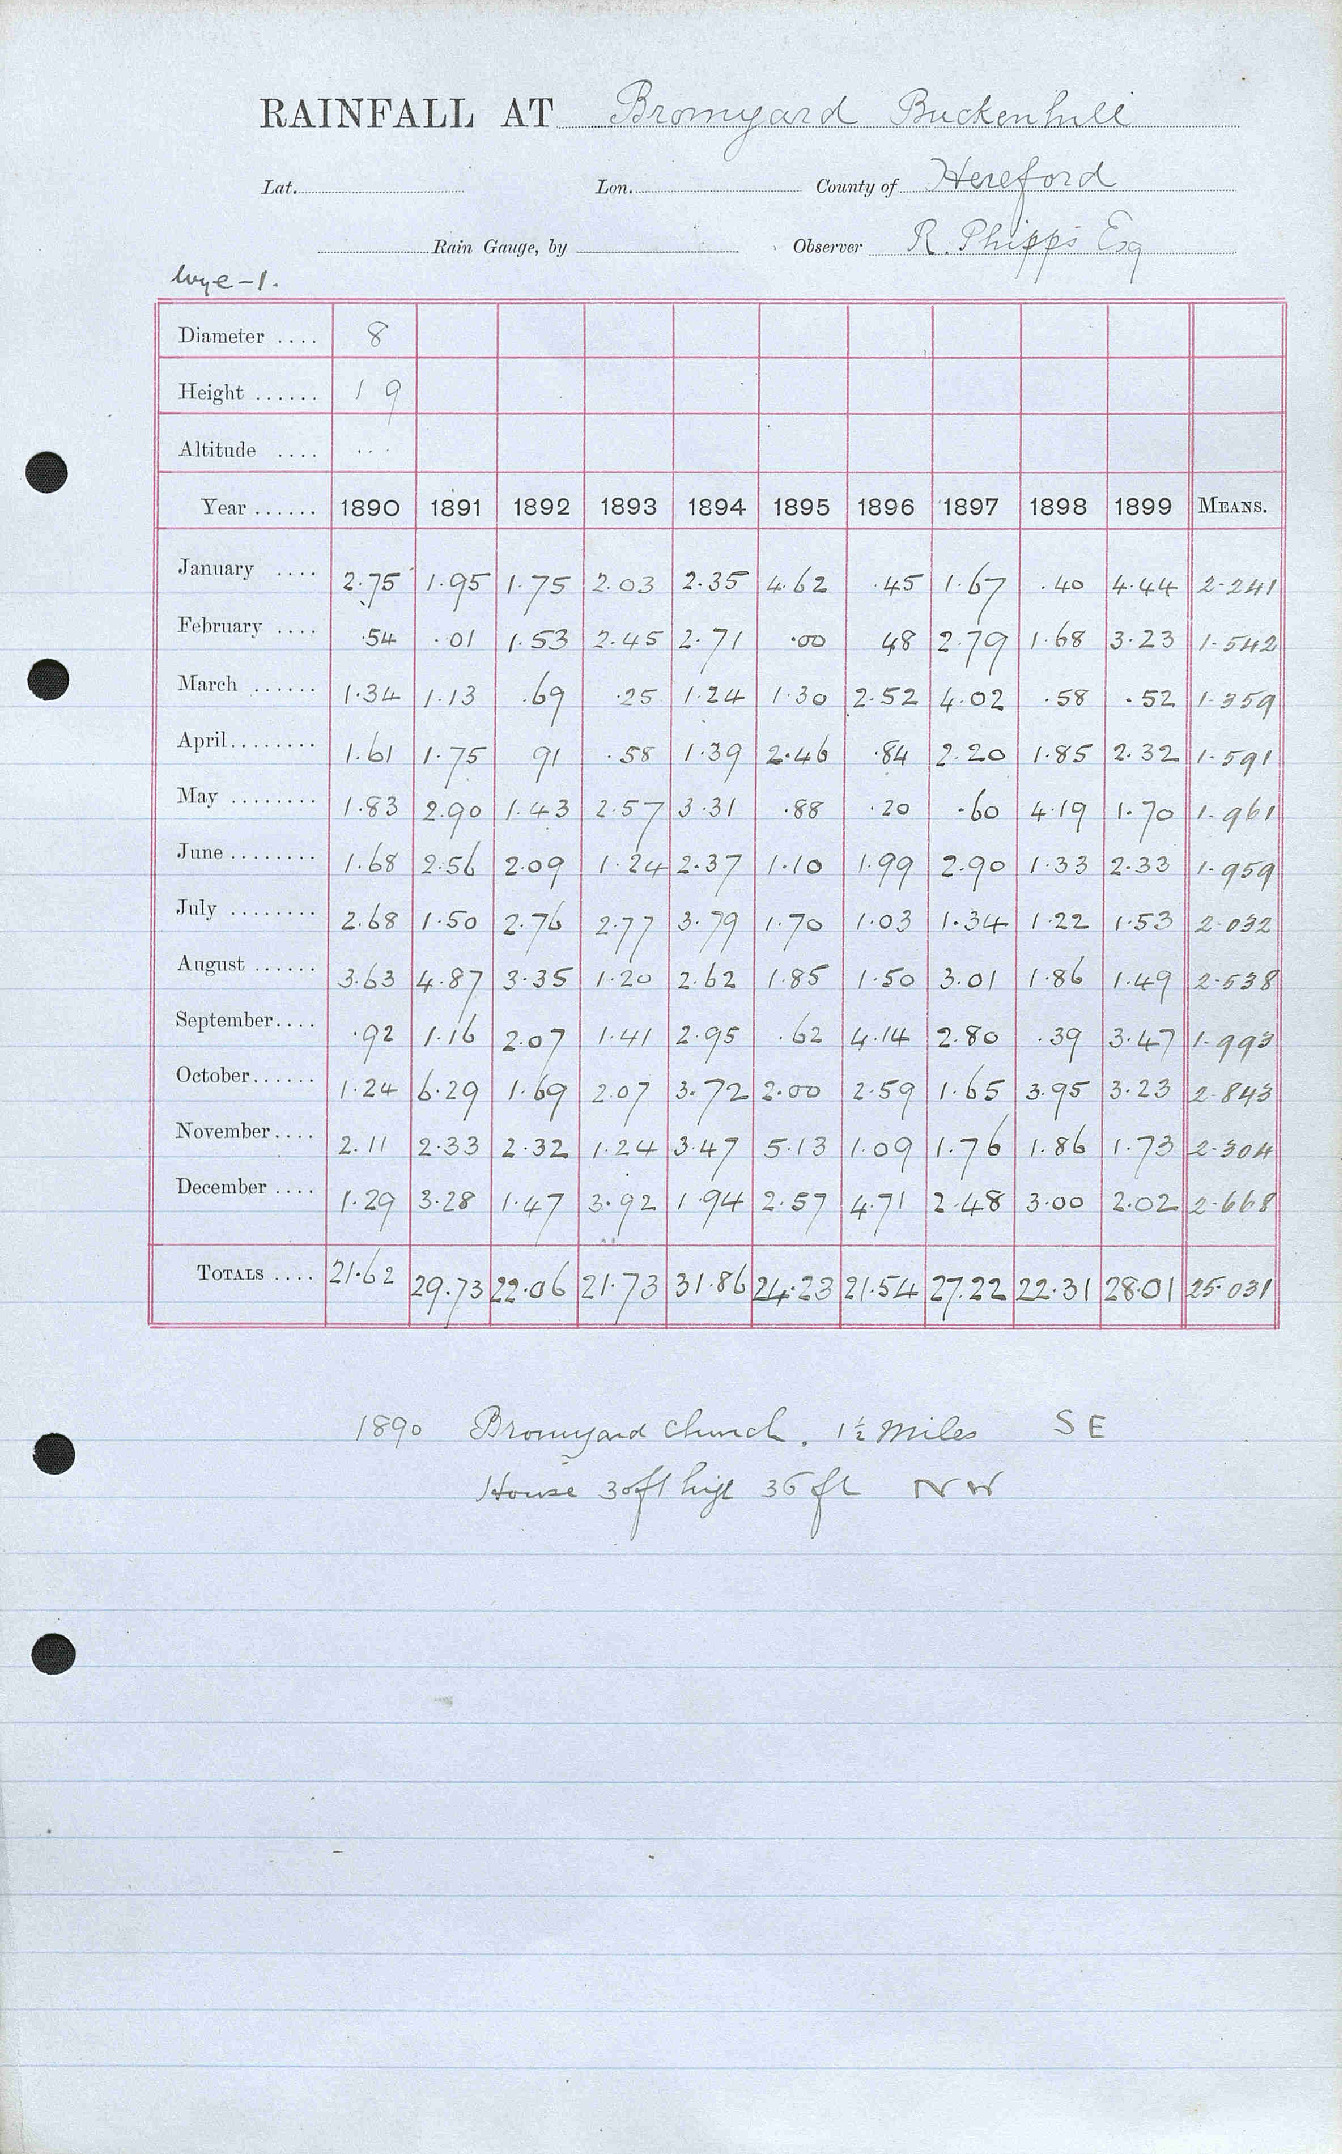 RAINFALL AT Bromyard Buckenhill
Lat. Lon. County of Hereford
Rain Gauge, by Observer R. Phipps Esq
Wye-1.
Diameter .... 8
Height ...... 1 9
Altitude .... ...
Year ...... 1890 1891 1892 1893 1894 1895 1896 1897 1898 1899 MEANS.
January .... 2.75 1.95 1.75 2.03 2.35 4.62 .45 1.67 .40 4.44 2.241
February .... .54 .01 1.53 2.45 2.71 .00 48 2.79 1.68 3.23 1.542
March ...... 1.34 1.13 .69 .25 1.24 1.30 2.52 4.02 .58 .52 1.359
April........ 1.61 1.75 91 .58 1.39 2.46 .84 2.20 1.85 2.32 1.591
May ........ 1.83 2.90 1.43 2.57 3.31 .88 .20 .60 4.19 1.70 1.961
June........ 1.68 2.56 2.09 1.24 2.37 1.10 1.99 2.90 1.33 2.33 1.959
July ........ 2.68 1.50 2.76 2.77 3.79 1.70 1.03 1.34 1.22 1.53 2.032
August ...... 3.63 4.87 3.35 1.20 2.62 1.85 1.50 3.01 1.86 1.49 2.538
September.... .92 1.16 2.07 1.41 2.95 .62 4.14 2.80 .39 3.47 1.993
October...... 1.24 6.29 1.69 2.07 3.72 2.00 2.59 1.65 3.95 3.23 2.843
November.... 2.11 2.33 2.32 1.24 3.47 5.13 1.09 1.76 1.86 1.73 2.304
December .... 1.29 3.28 1.47 3.92 1.94 2.57 4.71 2.48 3.00 2.02 2.668
TOTALS .... 21.62 29.73 22.06 21.73 31.86 24.23 21.54 27.22 22.31 28.01 25.031
1890 Bromyard church. 1½ miles S E
House 30ft high 36 ft N W